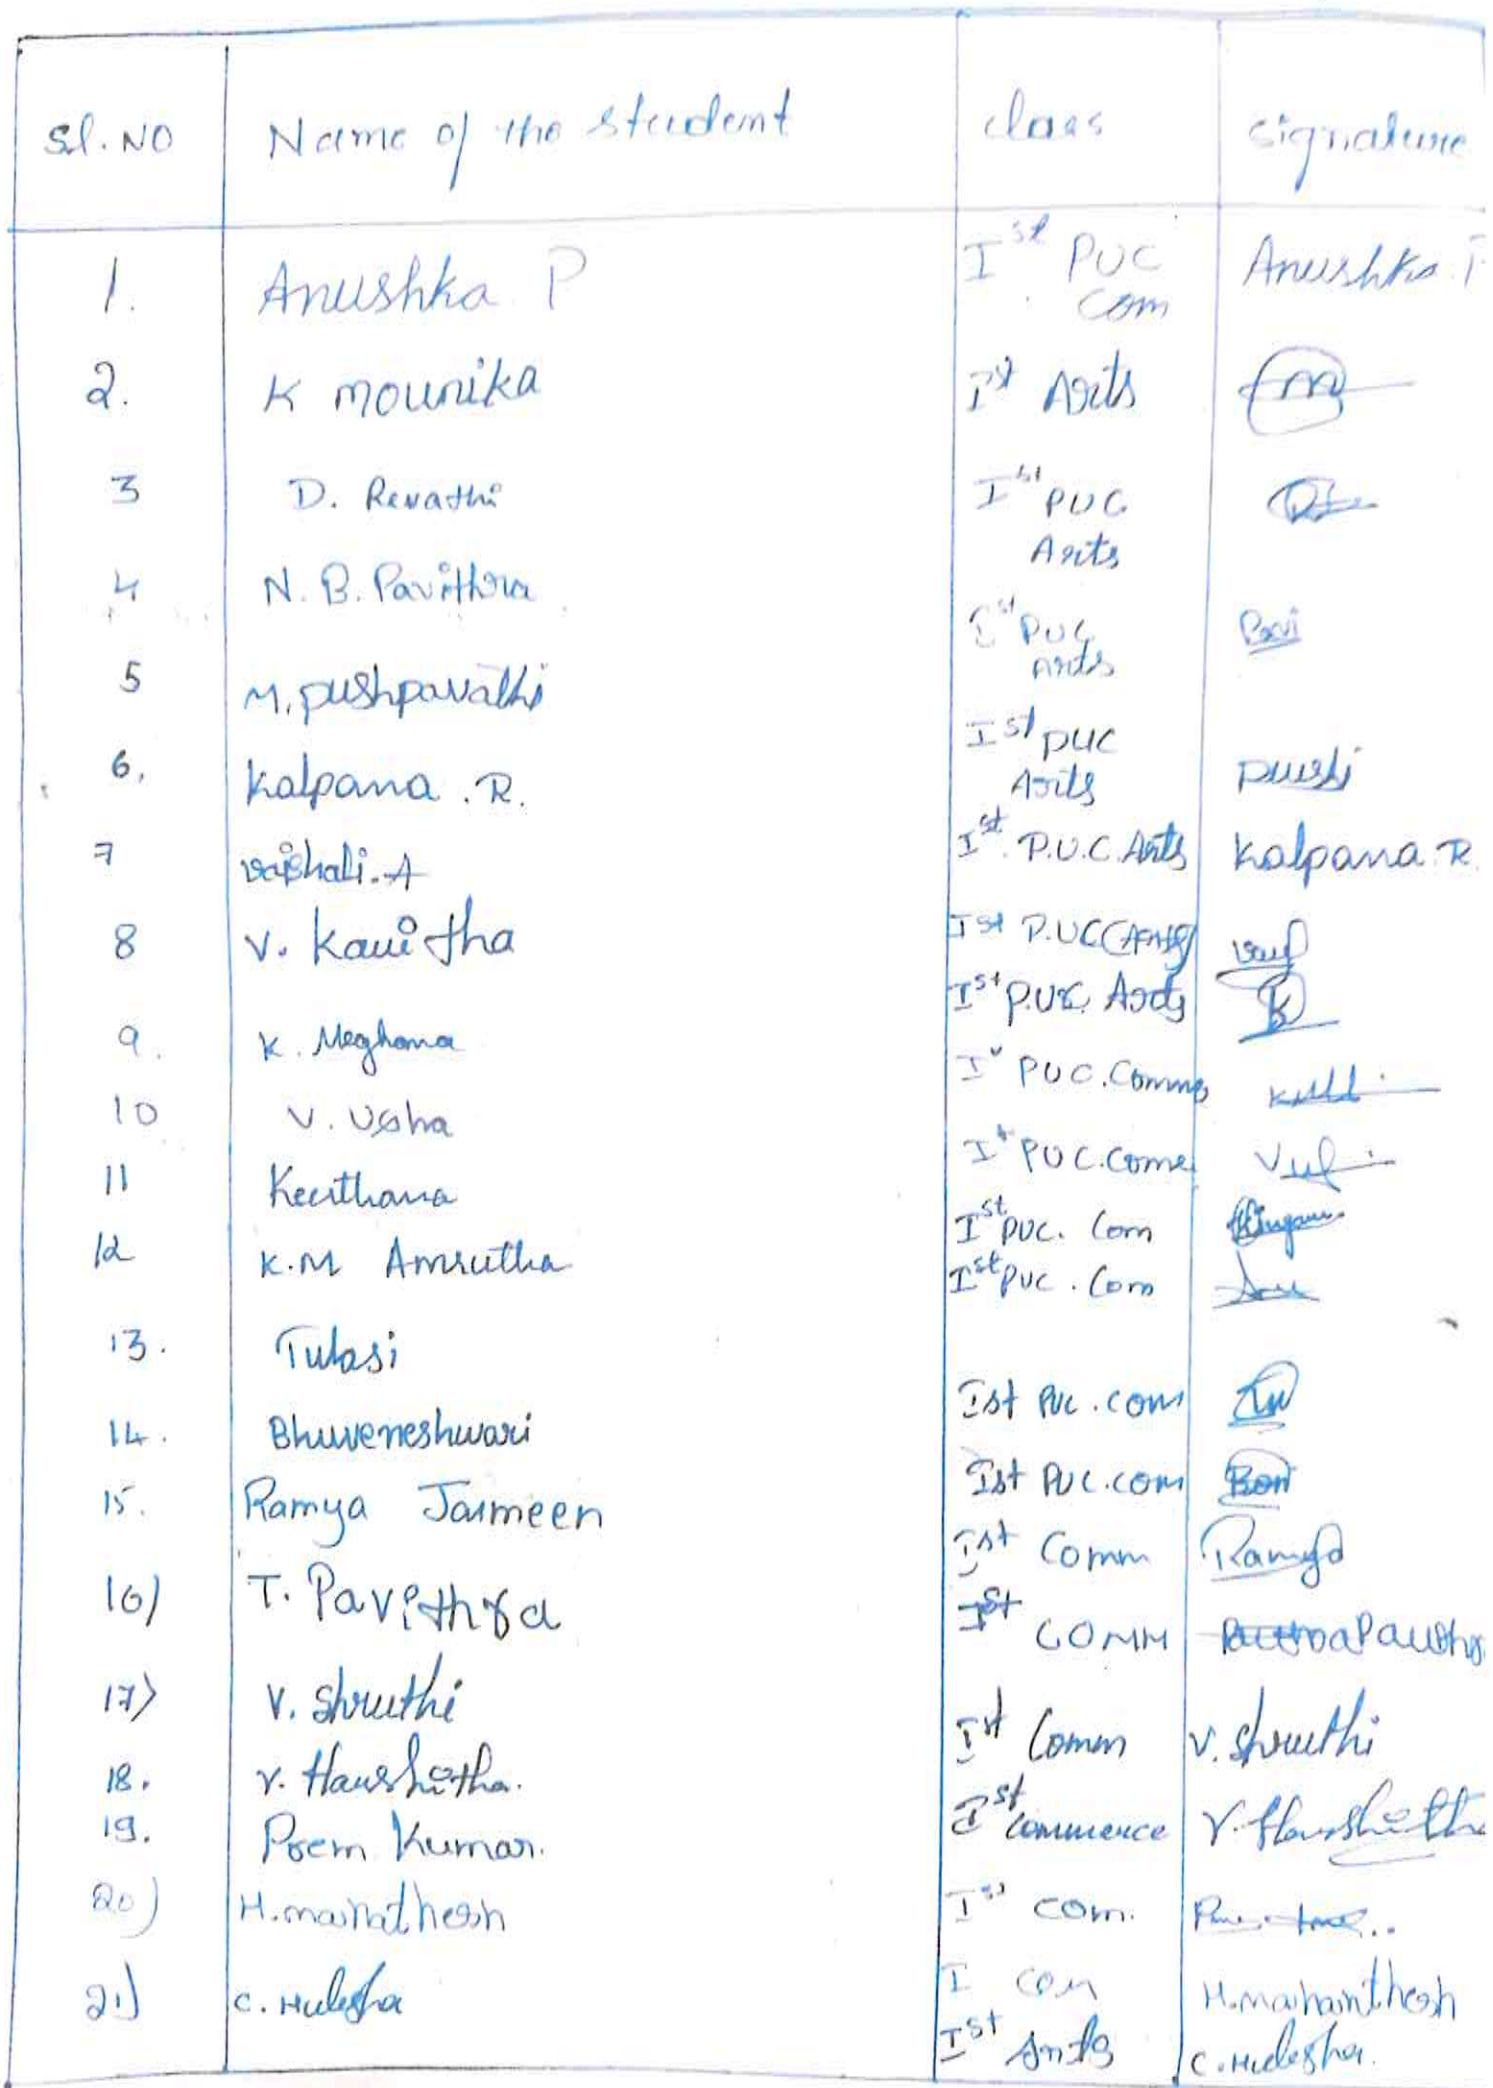 Sl. NO Name of the student class signature
1. Anushka P Ist PUC Com Anushka P
2. K mounika Ist Arts
3 D. Revathi Ist PUC Arts
4 N. B. Pavithra Ist PUC Arts Pavi
5 M. pushpavathi Ist PUC Arts pushi
6. Kalpana . R. Ist P.U.C. Arts Kalpana R
7 vaishali. A Ist P.UC (Arts)
8 V. Kavitha Ist P.UC. Arts K
9. K. Meghana Ist PUC. Comme
10 V. Usha Ist PUC. Come
11 Keerthana Ist PUC. Com
12 K.M Amrutha Ist PUC. Com
13. Tulasi Ist PUC. com
14. Bhuveneshwari Ist PUC. com
15. Ramya Jasmeen Ist Comm Ramya
16) T. Pavithra Ist COMM
17) V. Shruthi Ist Comm V. Shruthi
18. V. Harshitha. Ist Commerce V. Harshitha
19. Prem Kumar. Ist com.
20) H. mahanthesh I com H. mahainthesh
21) C. Hulesha Ist Arts C. Hulesha.